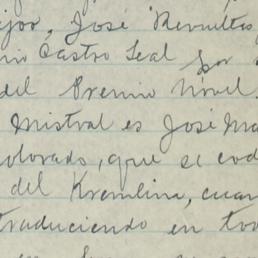 jor, José Revueltas
Castro Leal por
del Premio Nóvel.
Mistral es José Ma
olorado, que se cod
del Kremlina, cuan
traduciendo en to
en